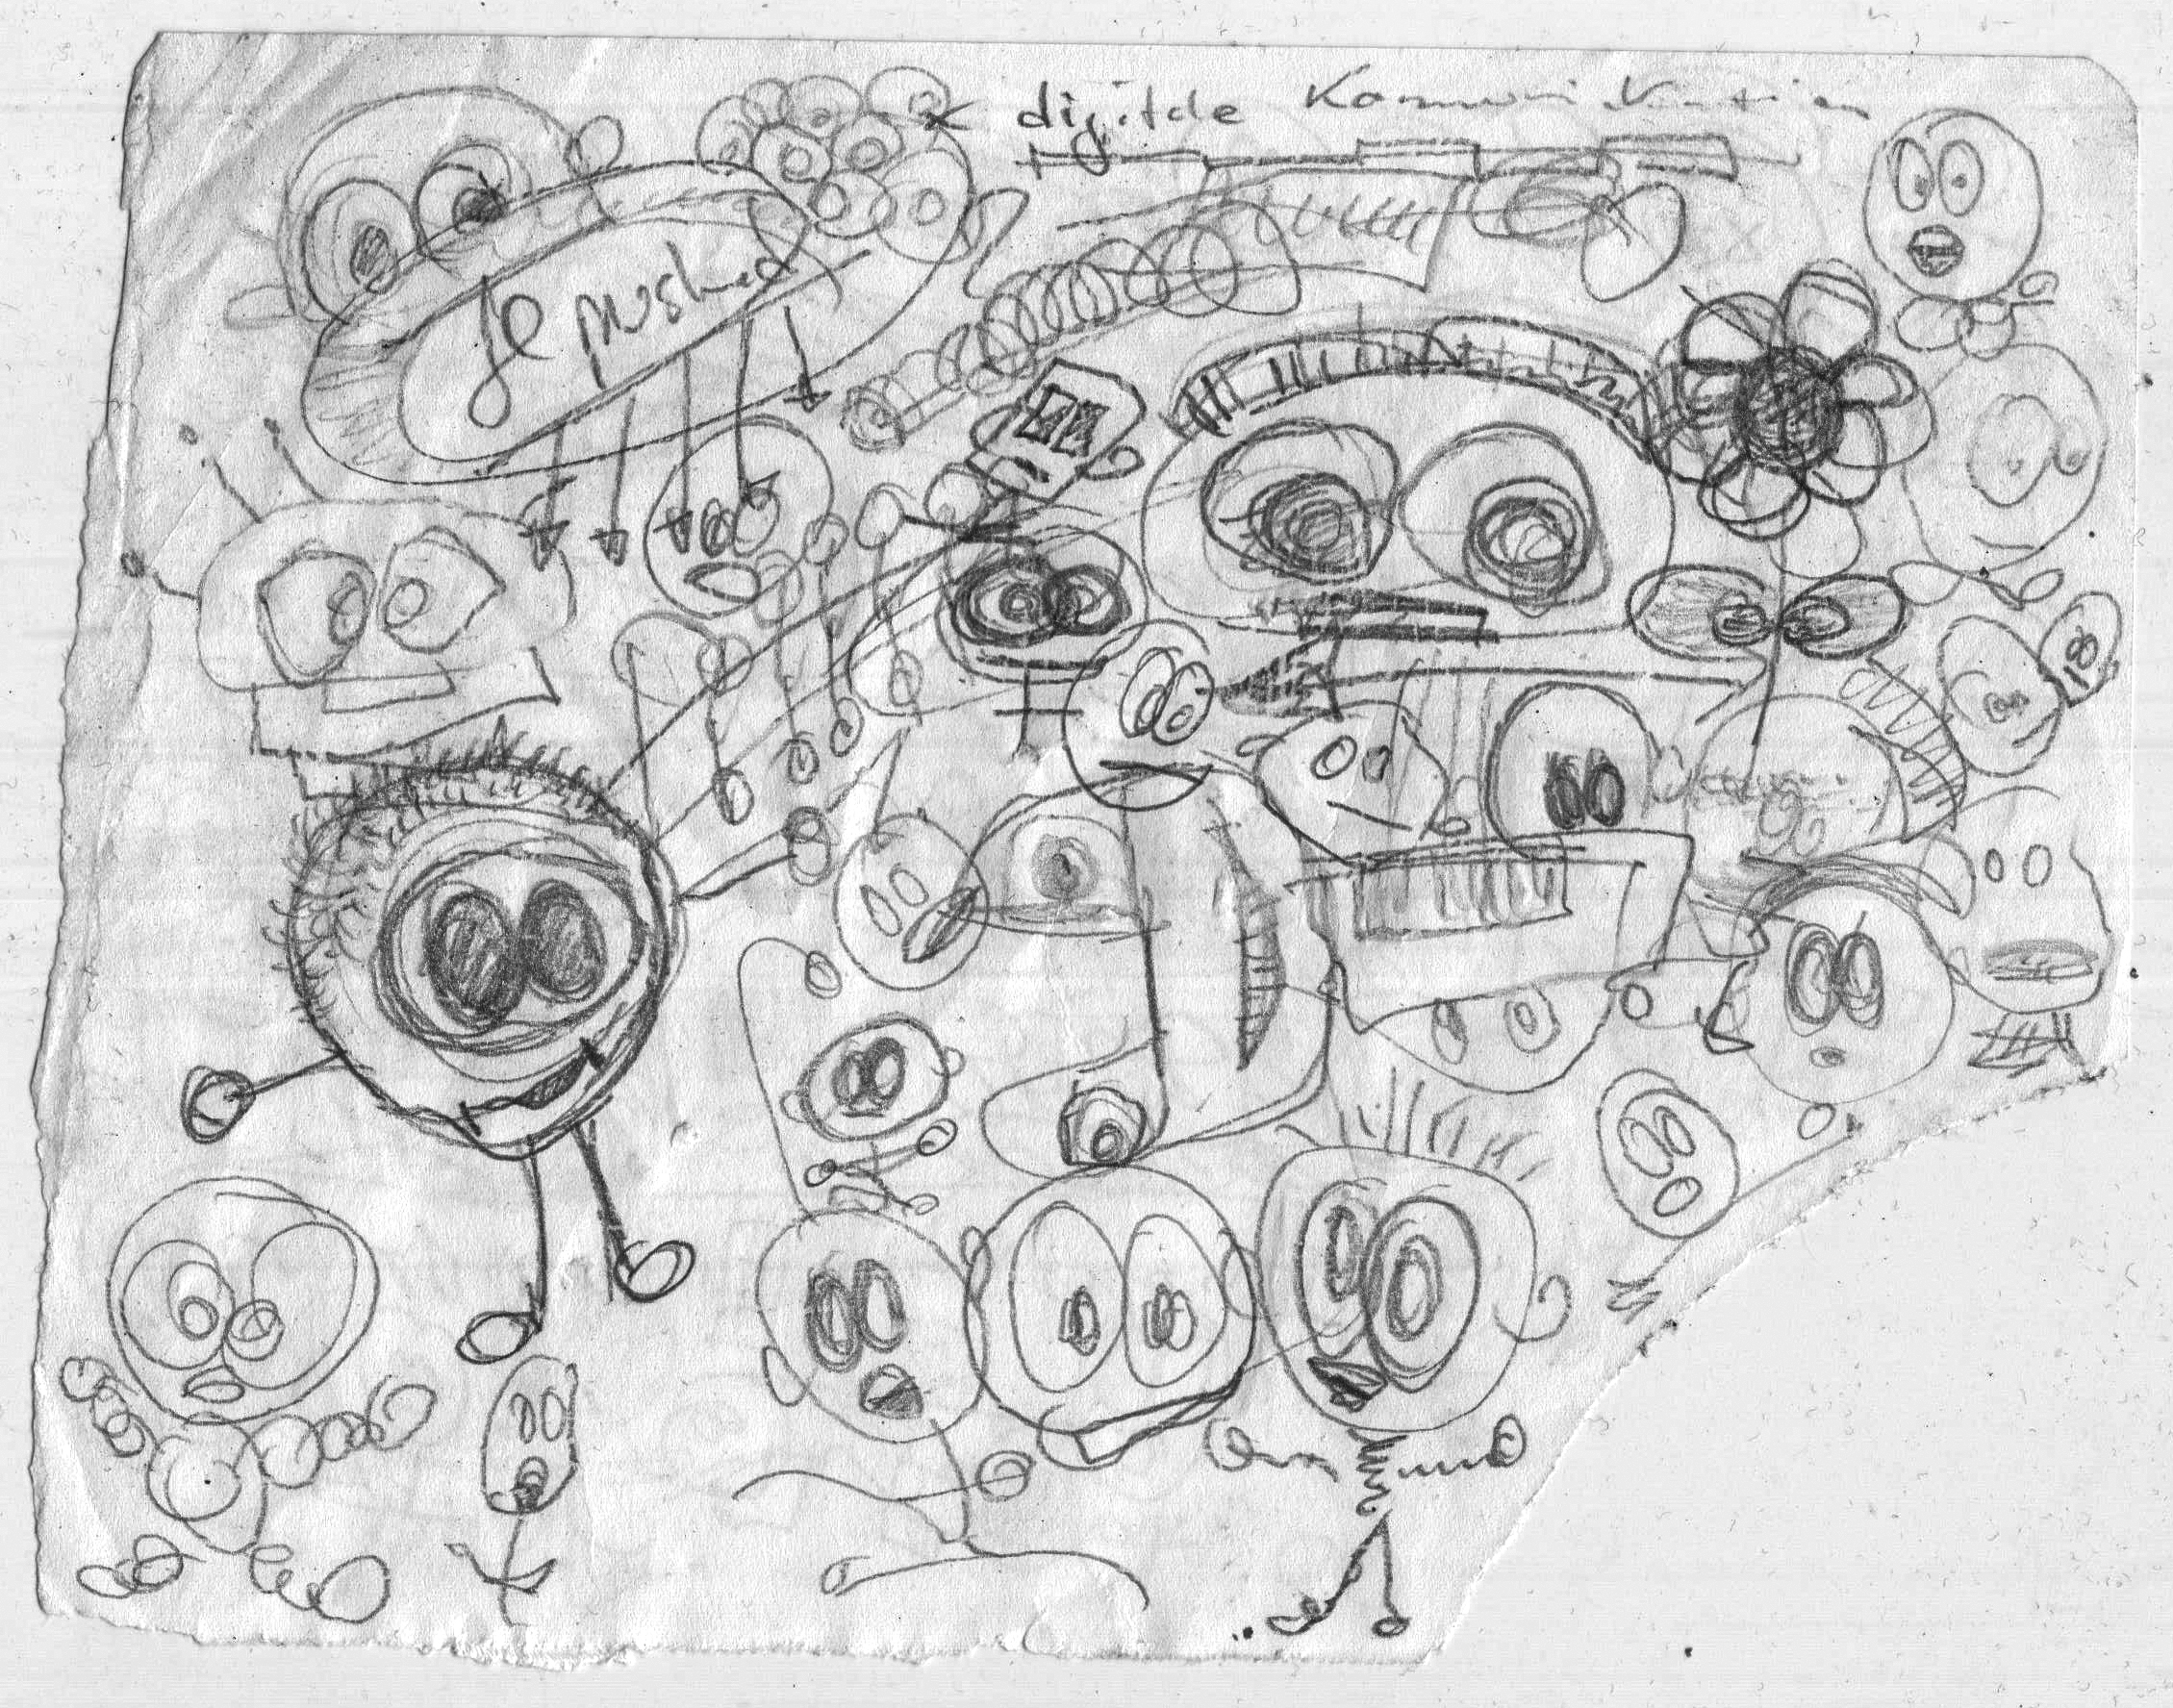 x digitale Kommunikation
Je pushed